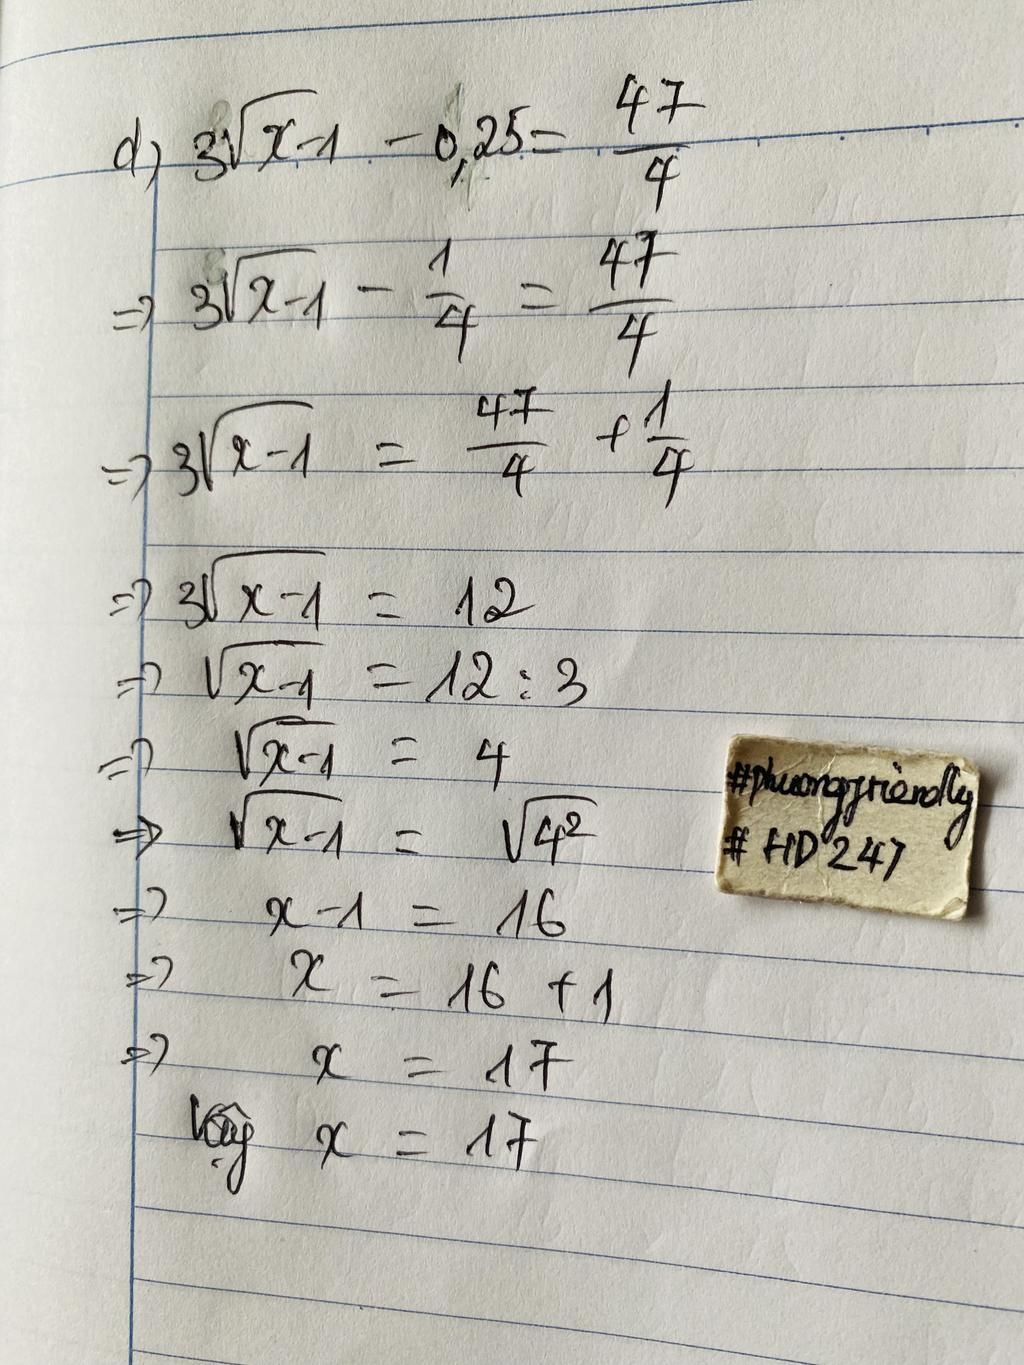 d, 3√(x-1) - 0,25 = 47/4
=> 3√(x-1) - 1/4 = 47/4
=> 3√(x-1) = 47/4 + 1/4
=> 3√(x-1) = 12
=> √(x-1) = 12 : 3
=> √(x-1) = 4
=> √(x-1) = √(4²)
=> x-1 = 16
=> x = 16 + 1
=> x = 17
Vậy x = 17
#phuongfriendly
# HD 247